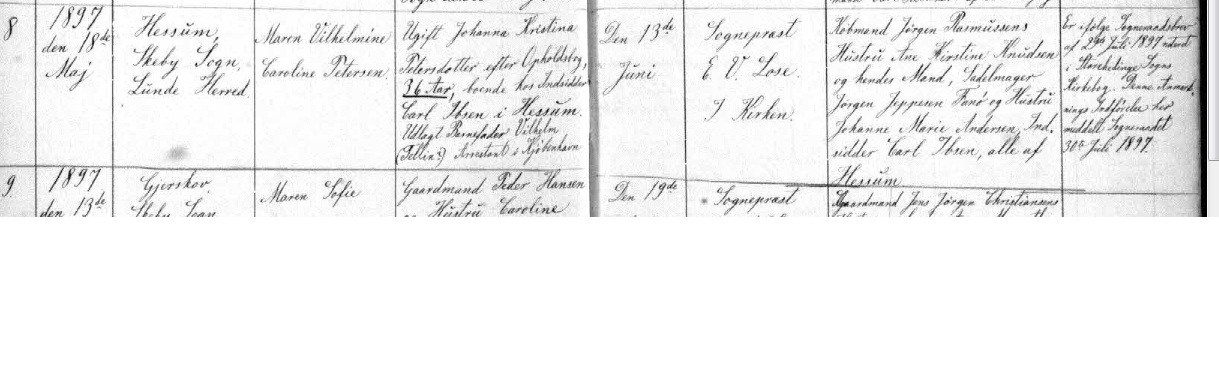 8
1897
den 18de
Maj
Hessum,
Skeby Sogn,
Lunde Herred.
Maren Vilhelmine
Caroline Petersen.
Ugift Johanna Kristina
Petersdotter efter Opholdsbog,
36 Aar, boende hos Indsidder
Carl Ibsen i Hessum.
Udlagt Barnefader Vilhelm
Arrestant i Kjøbenhavn
Den 13de
Juni
Sognepræst
E. V. Lose.
I Kirken.
Købmand Jörgen Rasmussens
Hustru Ane Kirstine Knudsen
og hendes Mand, Sadelmager
Jörgen Jeppesen Fanö og Hustru
Johanne Marie Andersen, Ind-
sidder Carl Ibsen, alle af
Hessum.
Er ifølge Sogneraadsbrev
af Juli 1897 indført
i Sogns
Kirkebog. Denne Anmærk-
nings Indførelse her
meddelt Sogneraadet
30te Juli 1897.
9
1897
den 13de
Gjerskov,
Skeby Sogn
Maren Sofie
Gaardmand Peder Hansen
og Hustru Caroline
Den 19de
Sognepræst
Gaardmand Jens Jörgen Christiansens